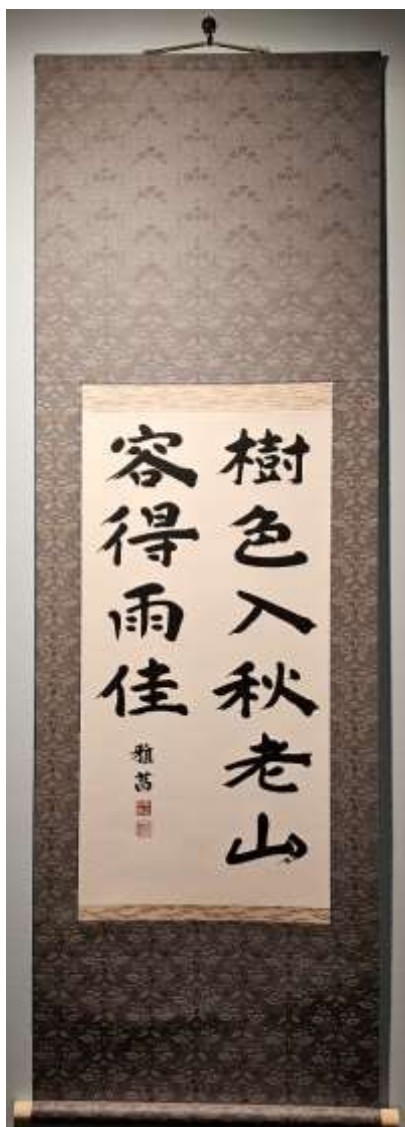 樹色入秋老山
容得雨佳
雅